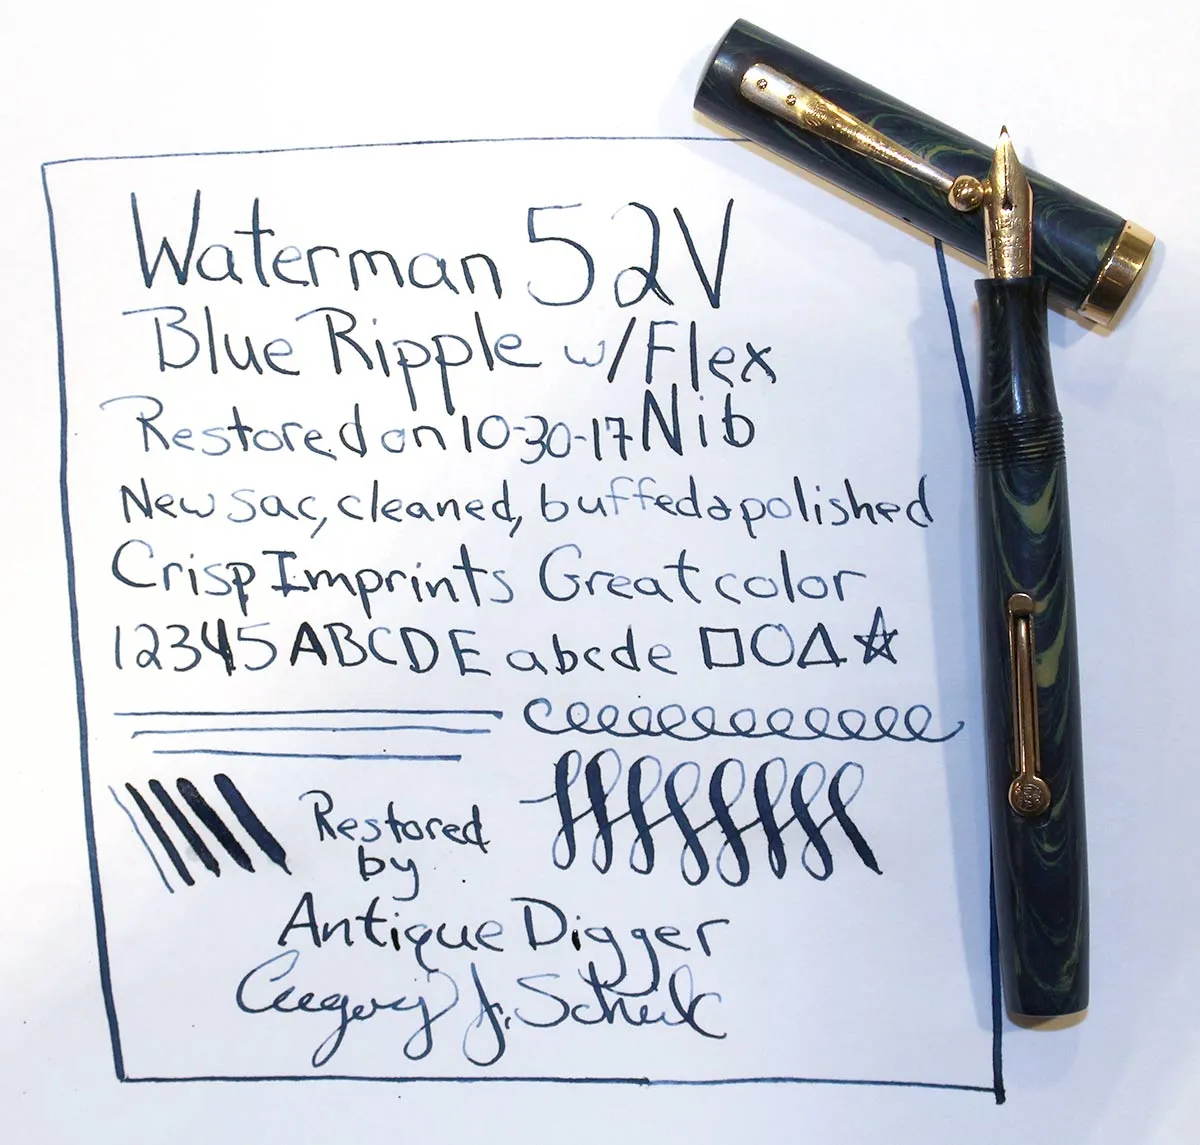 Waterman 52V
Blue Ripple w/Flex
Restored on 10-30-17 Nib
New sac, cleaned, buffed & polished
Crisp Imprints Great color
12345 ABCDE abcde
Restored
by
Antique Digger
Gregory J.